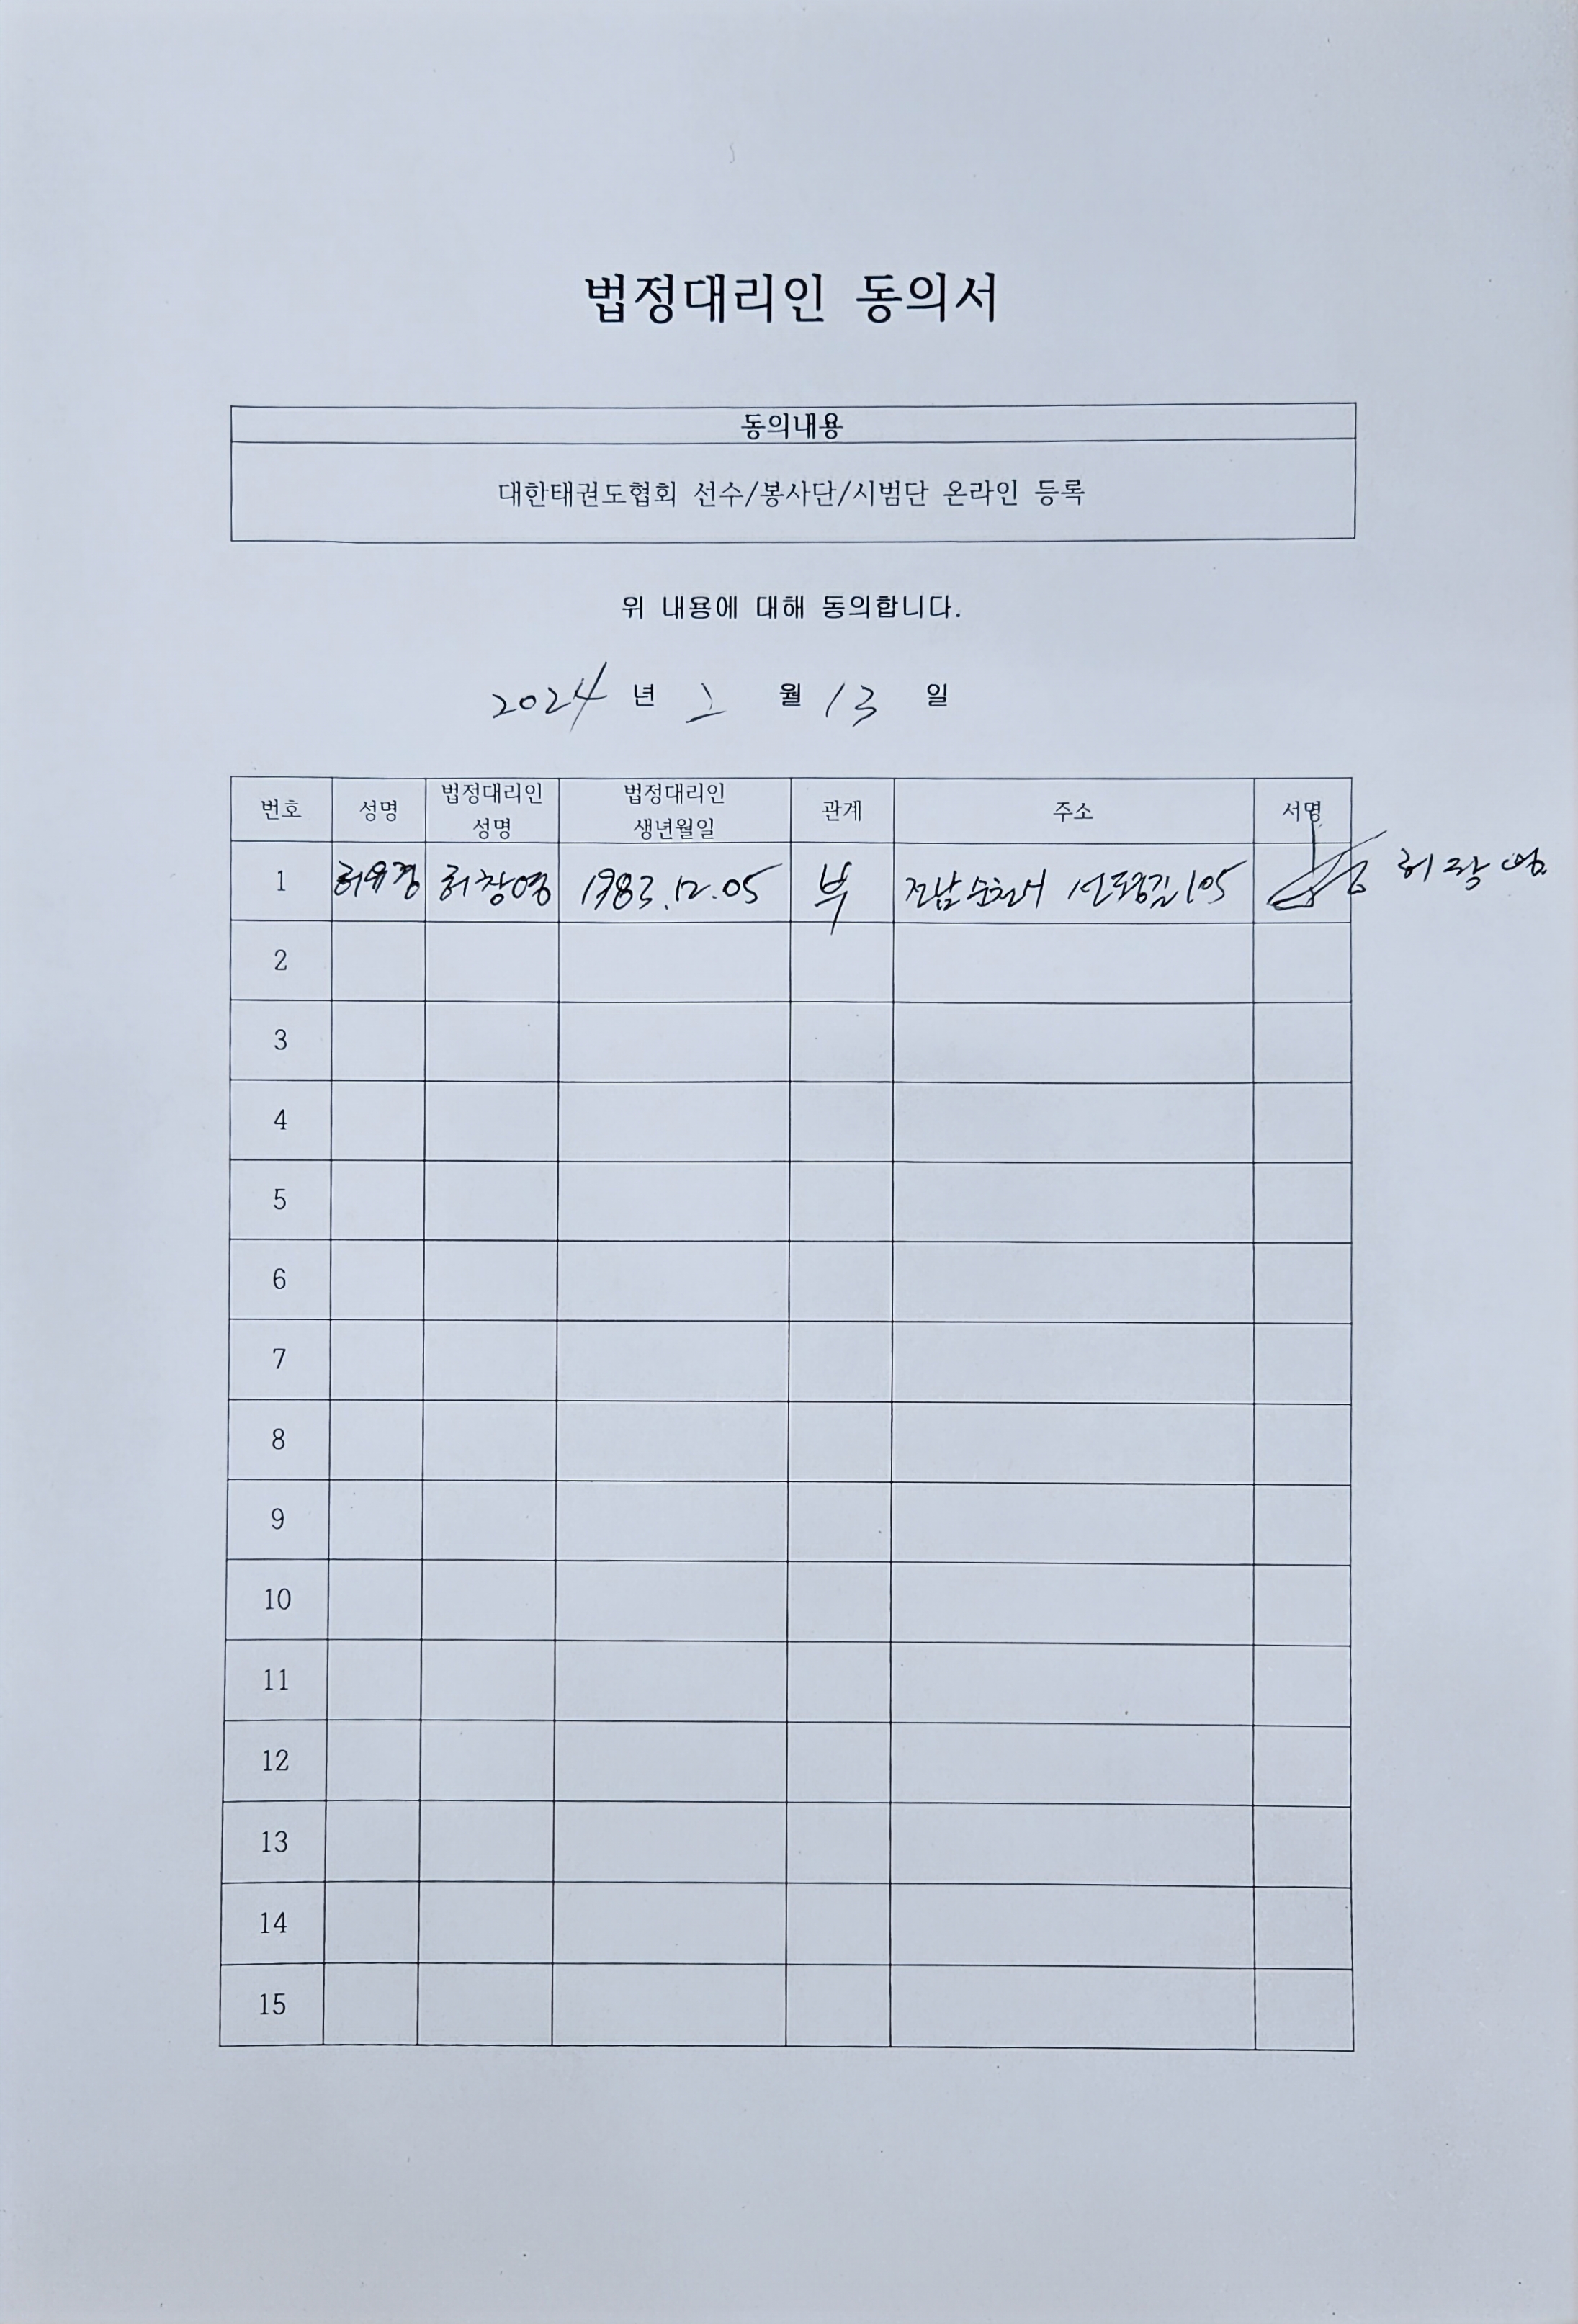 법정대리인 동의서
동의내용
대한태권도협회 선수/봉사단/시범단 온라인 등록
위 내용에 대해 동의합니다.
2024 년 2 월 13 일
번호 성명 법정대리인 성명 법정대리인 생년월일 관계 주소 서명
1 허유경 허창영 1983.12.05 부 전남 순천시 선평길 105 허창영
2
3
4
5
6
7
8
9
10
11
12
13
14
15